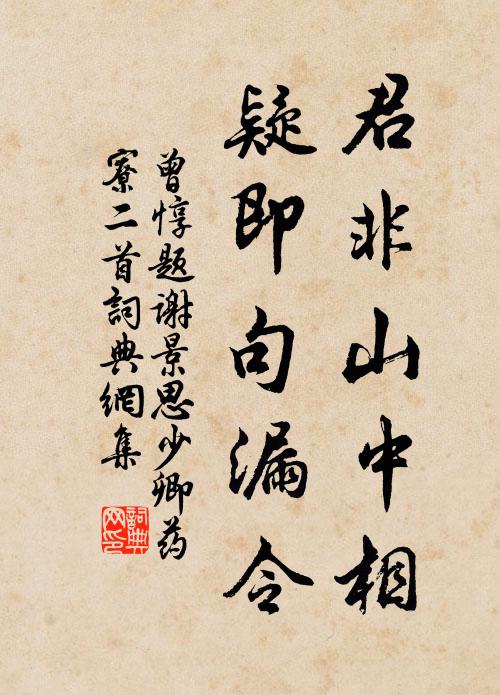 君非山中相
疑即句漏令
曾惇题谢景思少卿药
寮二首詞典網集
詞典
网印